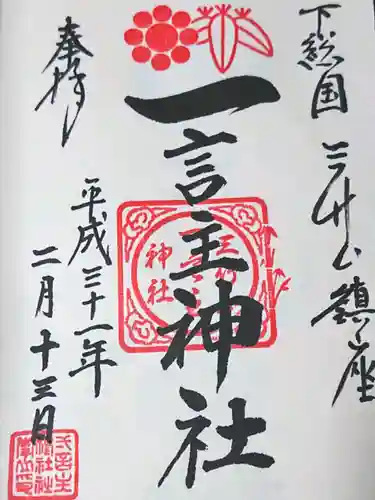 下総国三竹山鎮座
一言主神社
奉拝
平成三十一年
二月十三日